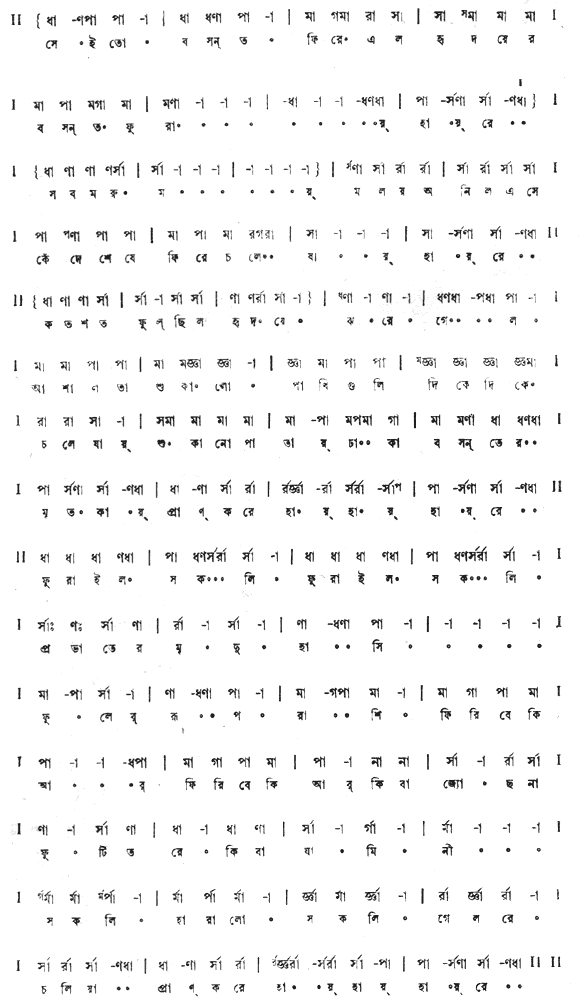 II { ধা -ণপা পা -া } ধা ধণা পা -া | মা গমা রা সা | সা সমা মা মা I
সে • ই তো • ব সন্ ত • ফি রে• এ ল হৃ দ য়ে র
I মা পা মগা মা | মণা -া -া -া | -ধা -া -া -ধণধা | পা -র্সণা র্সা -ণধা } I
ব সন্ ত• ফু রা• • • • • • • ••য়্ হা •য়্ রে ••
I { ধা ণা ণা ণর্সা | র্সা -া -া -া | -া -া -া -া } | র্সণা র্সা র্রা র্রা | র্সা র্রা র্সা র্সা I
স ব ম রু• ম • • • • • • য়্ ম ল য় অ নি ল এ সে
I পা পণা পা পা | মা পা মা রগরা | সা -া -া -া | সা -র্সণা র্সা -ণধা II
কেঁ দে শে ষে ফি রে চ লে•• যা • • য়্ হা •য়্ রে ••
II { ধা ণা ণা র্সা | র্সা -া র্সা র্সা | ণা ণর্রা র্সা -া } | ণা -া ণা -া | ধণধা -পধা পা -া I
ক ত শ ত ফু ল্ ছি ল হৃ দ• য়ে • ঝ • রে • গে•• •• ল •
I মা মা পা পা | মা মজ্ঞা জ্ঞা -া | জ্ঞা মা পা পা | মজ্ঞা জ্ঞা জ্ঞা জ্ঞমা I
আ শা ল তা শু কা• লো • পা খি গু লি দি কে দি কে•
I রা রা সা -া | সমা মা মা মা | মা -পা মপমা গা | মা মণা ধা ধণধা I
চ লে যা য়্ শু• কা নো পা তা য়্ ঢা•• কা ব সন্ তে র••
I পা র্সণা র্সা -ণধা | ধা -ণা র্সা র্রা | র্রজ্ঞা -র্রা র্সর্রা -র্সাণ | পা -র্সণা র্সা -ণধা II
মৃ ত• কা •য়্ প্রা ণ্ ক রে হা• য়্ হা• য়্ হা •য়্ রে ••
II ধা ধা ধা ণধা | পা ধণর্সর্রা র্সা -া | ধা ধা ধা ণধা | পা ধণর্সর্রা র্সা -া I
ফু রা ই ল• স ক••• লি • ফু রা ই ল• স ক••• লি •
I র্সাঃ ণঃ র্সা ণা | র্রা -া র্সা -া | ণা -ধণা পা -া | -া -া -া -া I
প্র ভা তে র মৃ • দু • হা •• সি • • • • •
I মা -পা র্সা -া | ণা -ধণা পা -া | মা -গপা মা -া | মা গা পা মা I
ফু • লে র্ রূ •• প • রা •• শি • ফি রি বে কি
I পা -া -া -ধপা | মা গা পা মা | পা -া না না | র্সা -া র্রা র্সা I
আ • • •র্ ফি রি বে কি আ র্ কি বা জ্যো • ছ না
I ণা -া র্সা ণা | ধা -া ধা ণা | র্সা -া র্গা -া | র্মা -া -া -া I
ফু • টি ত রে • কি বা যা • মি • নী • • •
I র্গর্মা র্মা র্মর্পা -া | র্মা র্পা র্মা -া | র্জ্ঞা র্মা র্জ্ঞা -া | র্রা র্জ্ঞা র্রা -া I
স ক লি • হা রা লো • স ক লি • গে ল রে •
I র্সা র্রা র্সা -ণধা | ধা -ণা র্সা র্রা | র্রজ্ঞর্রা -র্সর্রা র্সা -পা | পা -র্সণা র্সা -ণধা II II
চ লি য়া •• প্রা ণ্ ক রে হা• •য়্ হা য়্ হা •য়্ রে ••